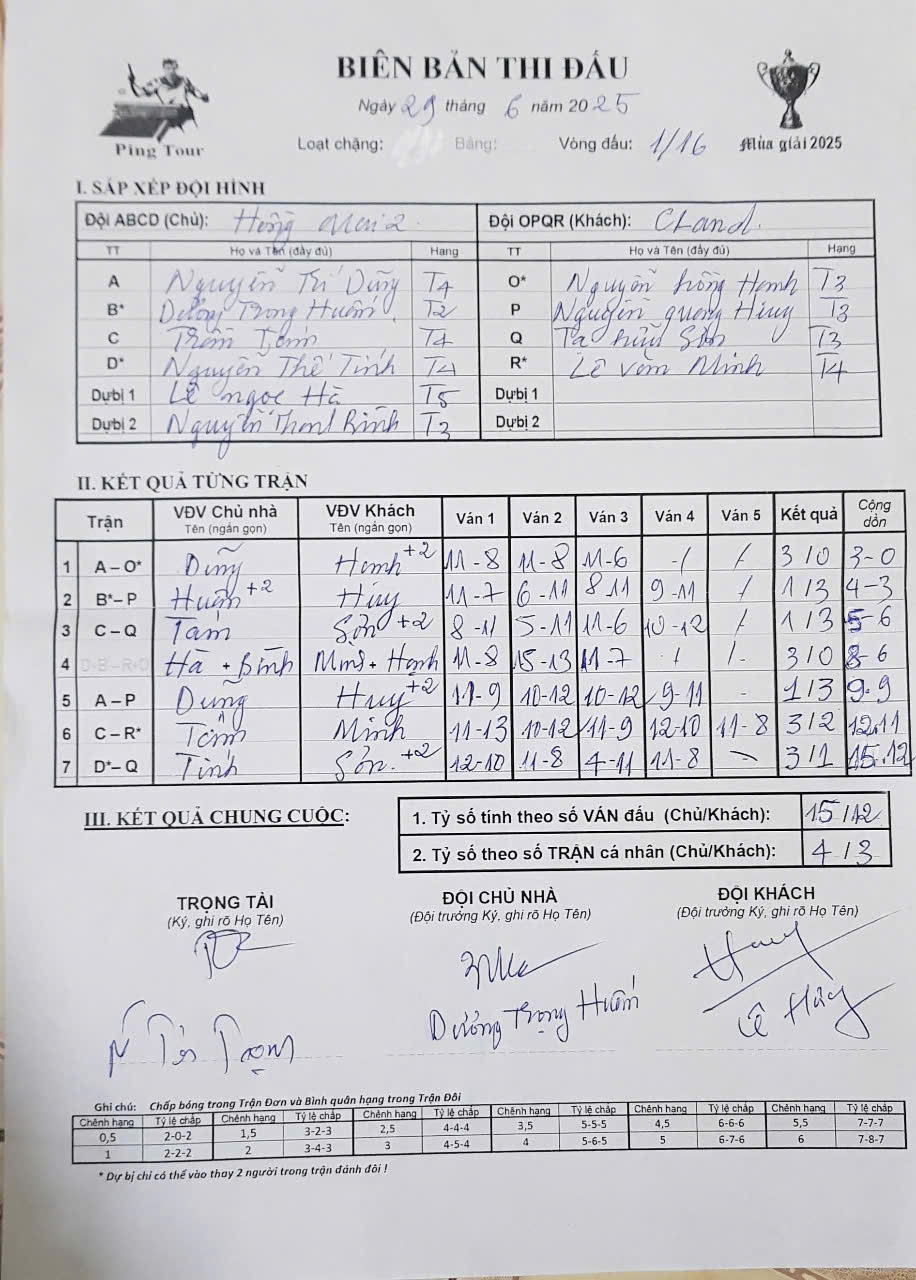 BIÊN BẢN THI ĐẤU
Ngày 29 tháng 6 năm 2025
Ping Tour
Loạt chặng: Bảng: Vòng đấu: 1/16
Mùa giải 2025
I. SẮP XẾP ĐỘI HÌNH
Đội ABCD (Chủ): Hồng Mai 2 Đội OPQR (Khách): CLand.
TT Họ và Tên (đầy đủ) Hạng TT Họ và Tên (đầy đủ) Hạng
A Nguyễn Trí Dũng T4 O* Nguyễn hồng Hạnh T3
B* Dương Trọng Huấn T2 P Nguyễn quang Huy T3
C Trần Tám T4 Q Tạ hữu Sơn T3
D* Nguyễn Thế Tính T4 R* Lê văn Minh T4
Dự bị 1 Lê ngọc Hà T5 Dự bị 1
Dự bị 2 Nguyễn Thanh Bình T3 Dự bị 2
II. KẾT QUẢ TỪNG TRẬN
Trận VĐV Chủ nhà Tên (ngắn gọn) VĐV Khách Tên (ngắn gọn) Ván 1 Ván 2 Ván 3 Ván 4 Ván 5 Kết quả Cộng dồn
1 A – O* Dũng Hạnh +2 11-8 11-8 11-6 / / 3/0 3-0
2 B* – P Huấn +2 Huy 11-7 6-11 8-11 9-11 / 1/3 4-3
3 C – Q Tám Sơn +2 8-11 5-11 11-6 10-12 / 1/3 5-6
4 Hà + Bình Minh + Hạnh 11-8 15-13 11-7 / /- 3/0 8-6
5 A – P Dũng Huy +2 11-9 10-12 10-12 9-11 - 1/3 9-9
6 C – R* Tám Minh 11-13 10-12 11-9 12-10 11-8 3/2 12.11
7 D* – Q Tính Sơn. +2 12-10 11-8 4-11 11-8 - 3/1 15.12
III. KẾT QUẢ CHUNG CUỘC:
1. Tỷ số tính theo số VÁN đấu (Chủ/Khách): 15/12
2. Tỷ số theo số TRẬN cá nhân (Chủ/Khách): 4/3
TRỌNG TÀI ĐỘI CHỦ NHÀ ĐỘI KHÁCH
(Ký, ghi rõ Họ Tên) (Đội trưởng Ký, ghi rõ Họ Tên) (Đội trưởng Ký, ghi rõ Họ Tên)
Dương Trọng Huấn
Ghi chú: Chấp bóng trong Trận Đơn và Bình quân hạng trong Trận Đôi
Chênh hạng Tỷ lệ chấp Chênh hạng Tỷ lệ chấp Chênh hạng Tỷ lệ chấp Chênh hạng Tỷ lệ chấp Chênh hạng Tỷ lệ chấp Chênh hạng Tỷ lệ chấp
0,5 2-0-2 1,5 3-2-3 2,5 4-4-4 3,5 5-5-5 4,5 6-6-6 5,5 7-7-7
1 2-2-2 2 3-4-3 3 4-5-4 4 5-6-5 5 6-7-6 6 7-8-7
* Dự bị chỉ có thể vào thay 2 người trong trận đánh đôi !